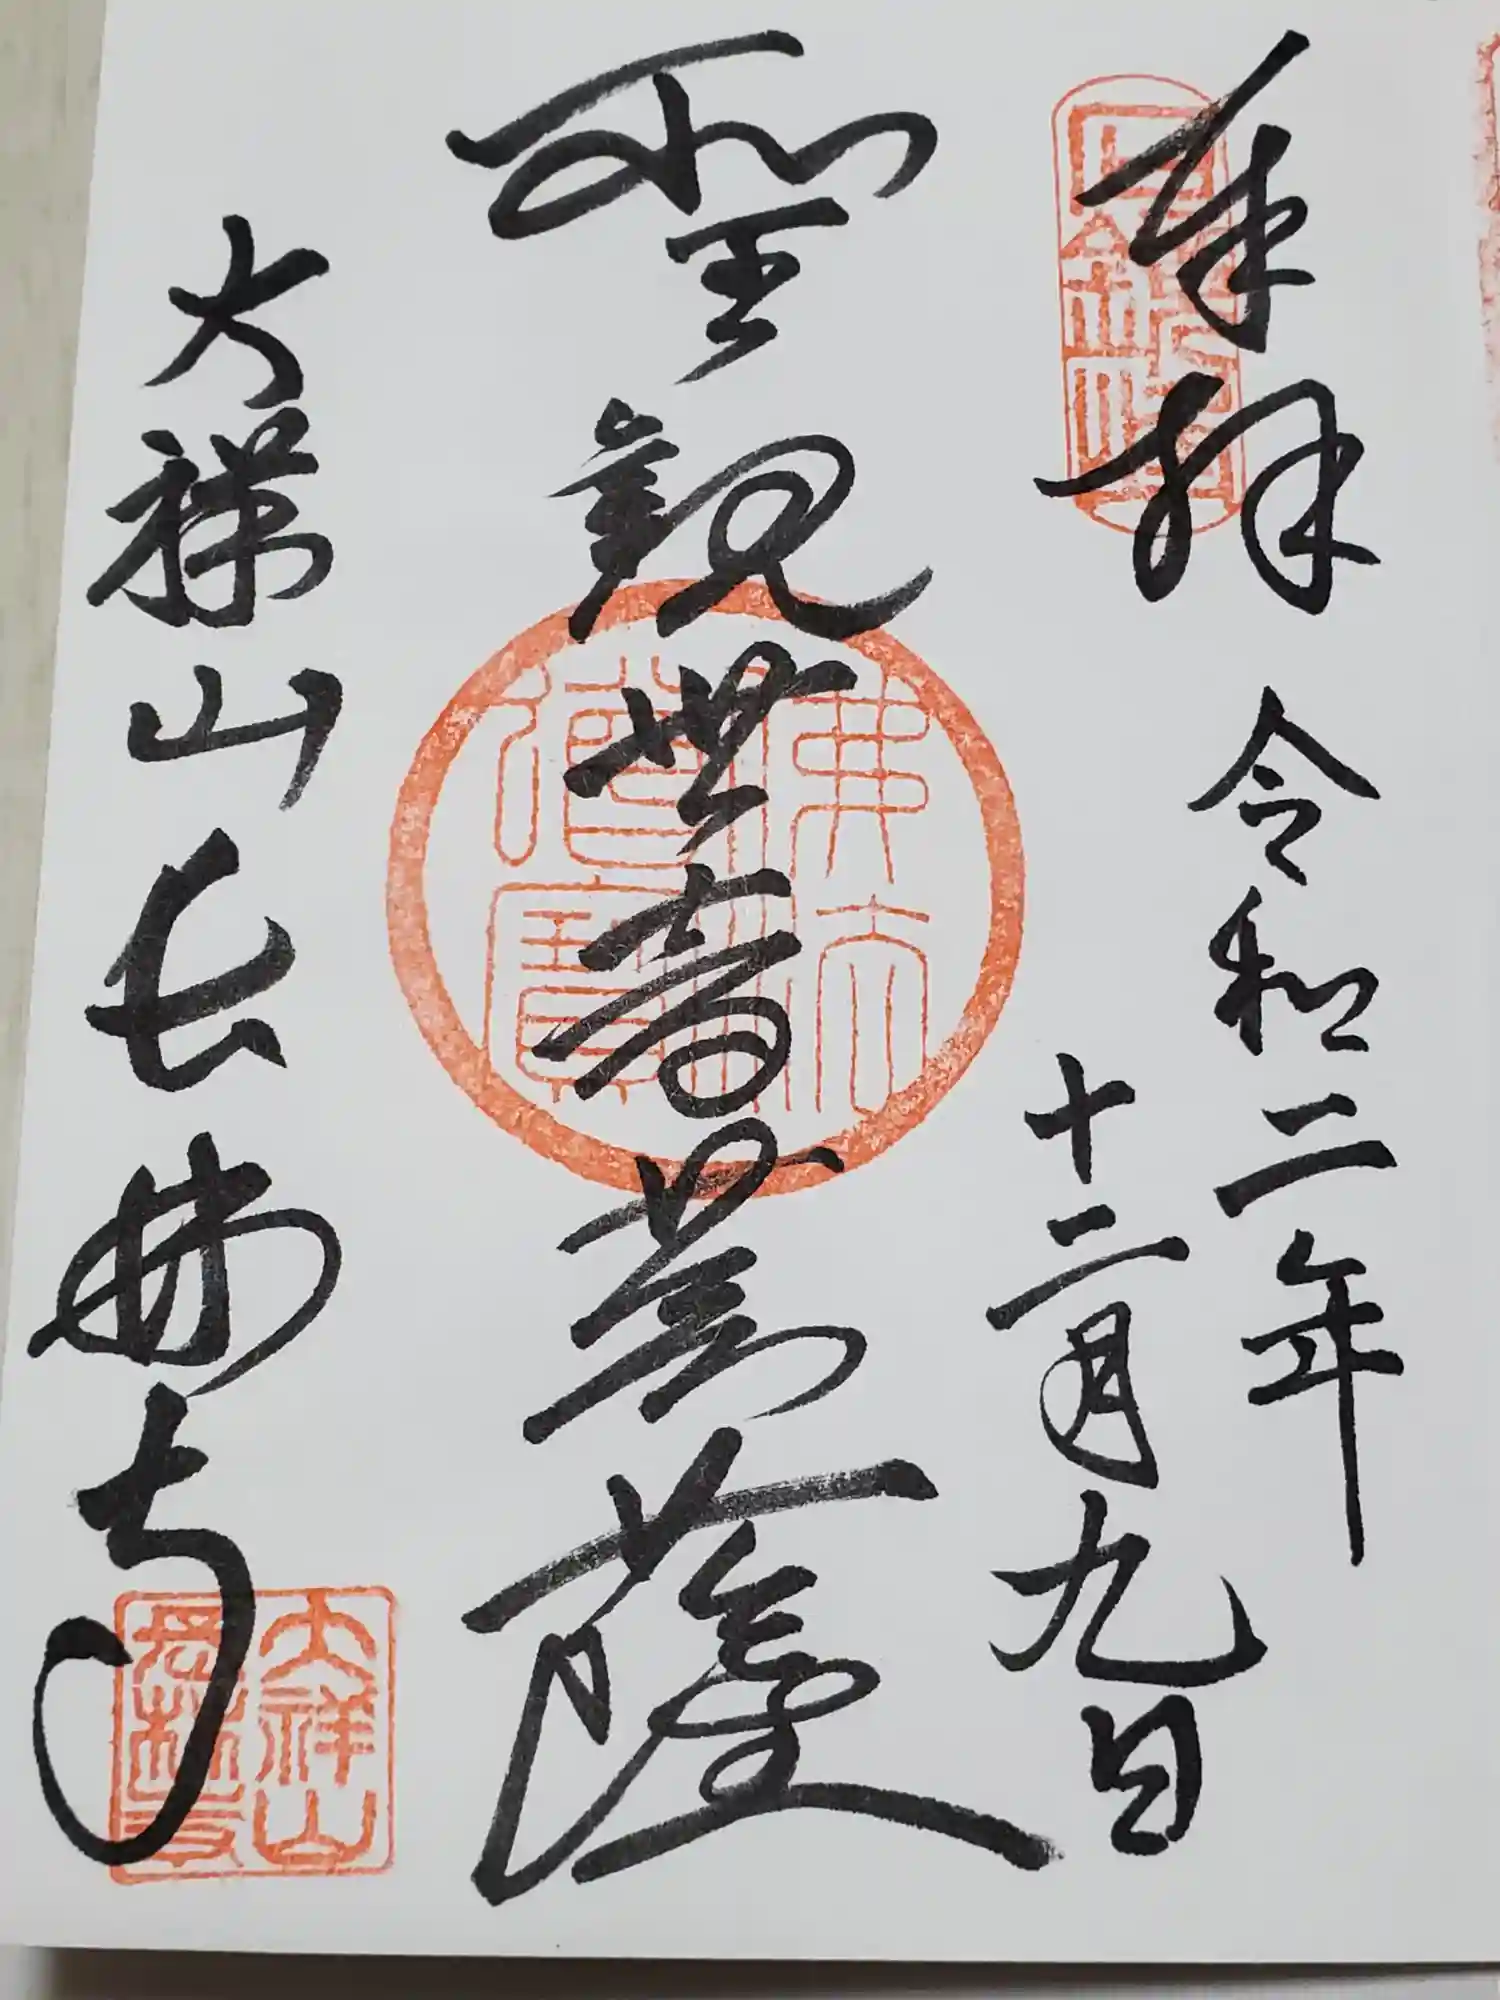 奉拝
令和二年
十二月九日
聖観世音菩薩
佛法僧寳
大祥山長林寺
大祥山
長林寺